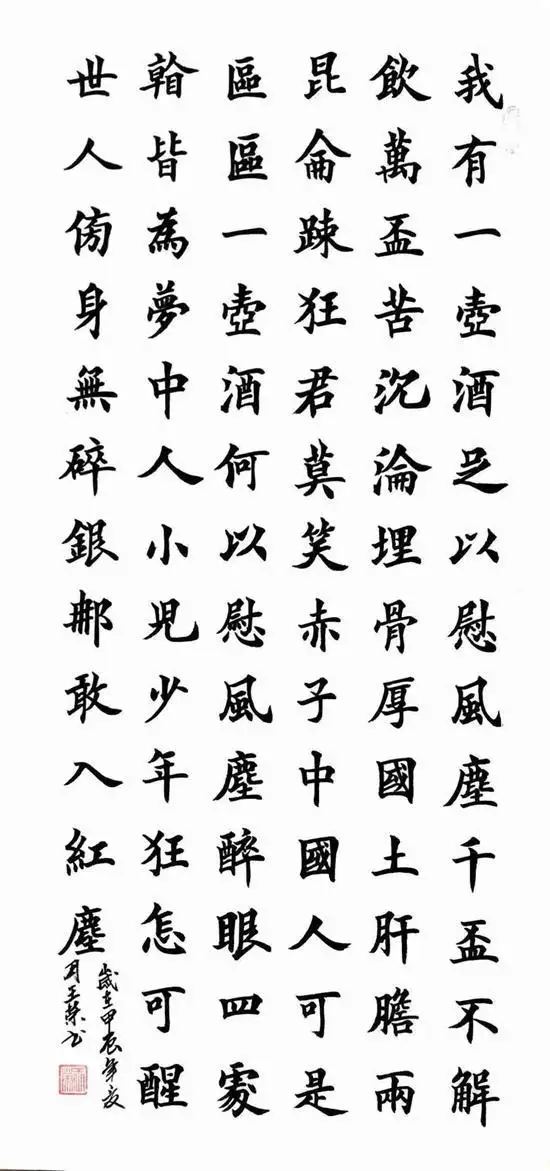 我有一壺酒足以慰風塵千盃不解
飲萬盃苦沉淪埋骨厚國土肝膽兩
昆侖踈狂君莫笑赤子中國人可是
區區一壺酒何以慰風塵醉眼四處
皆為夢中人小児少年狂怎可醒
世人傍身無碎銀那敢入紅塵
歲在甲辰年夏
月王荣书